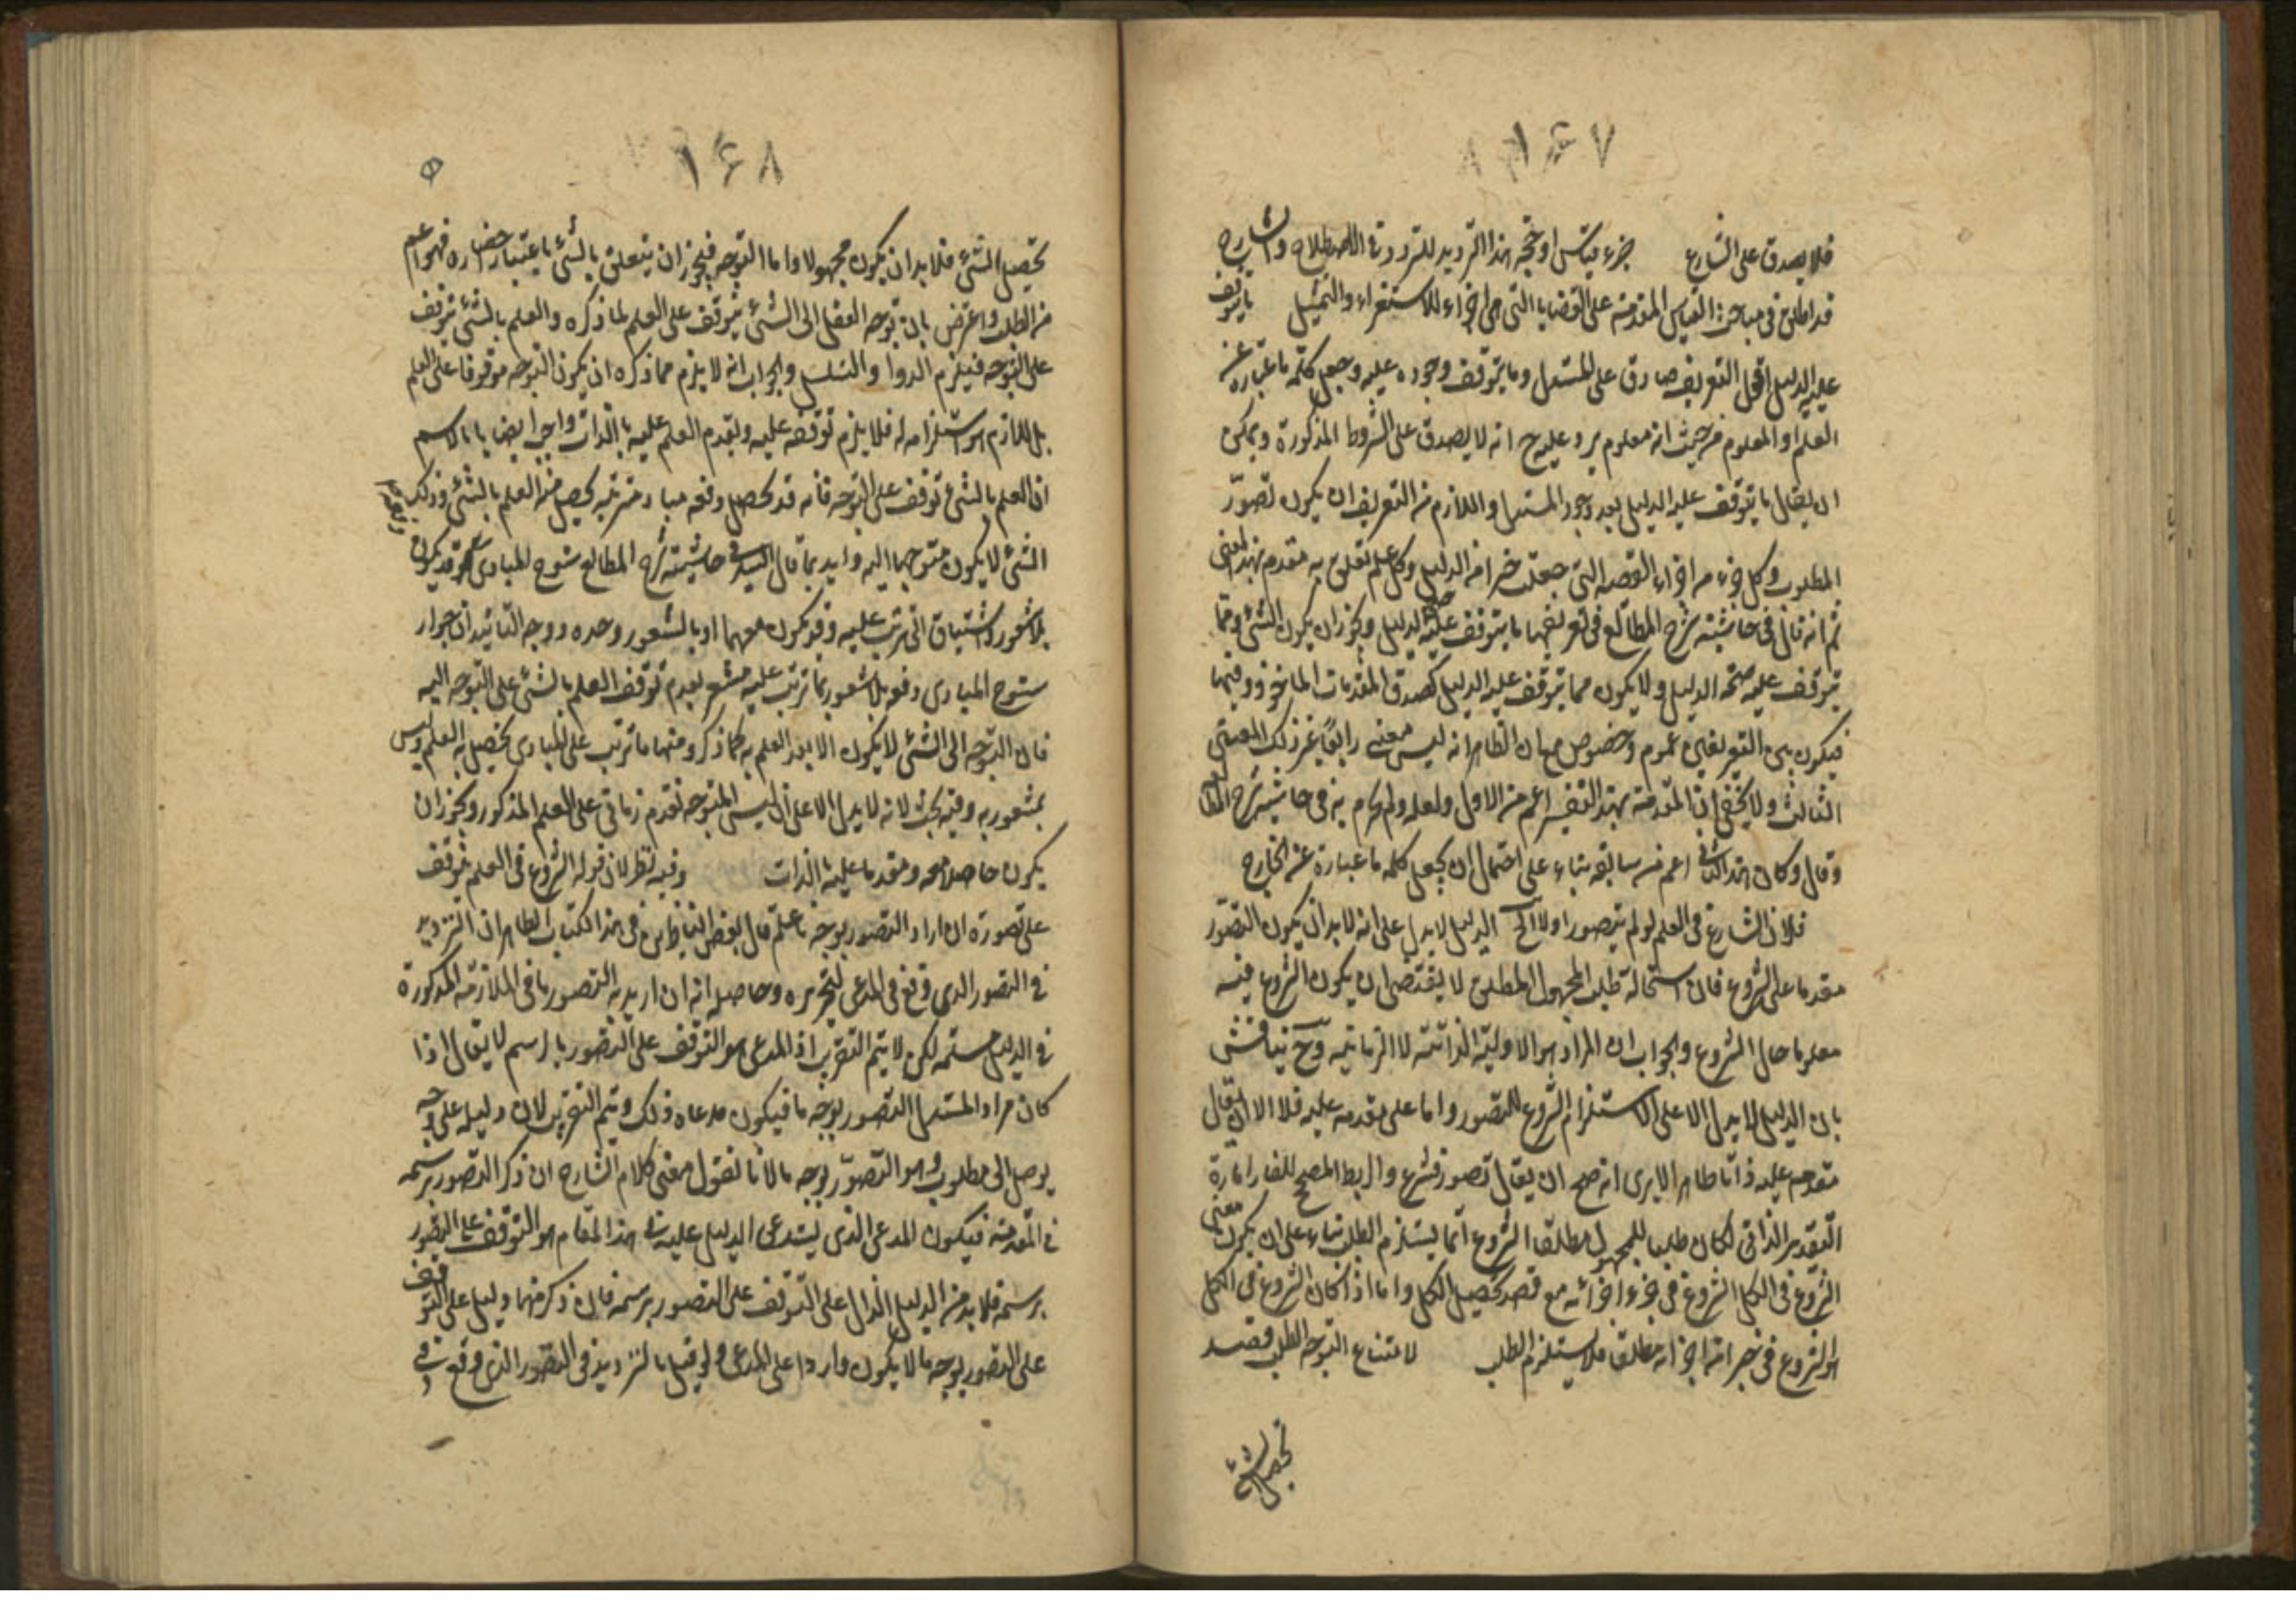 ١٦٧
فلا يصدق على الشارع جزء قياس او حجة هذا الترديد للتردد في الاصطلاح والشارح
قد اطلق في مباحث القياس المقدمة على القضايا التي هي اجزاء للاستقراء والتمثيل ما يتوقف
عليه الدليل التعريف صادق على المستدل وما يتوقف وجوده عليه وجعل كلمة ما عبارة عن
العلم او المعلوم من حيث انه معلوم يرد عليه ح انه لا يصدق على الشروط المذكورة ويمكن
ان يقال ما يتوقف عليه الدليل بعد وجود المستدل واللازم من التعريف ان يكون تصور
المطلوب وكل جزء من اجزاء القضية التي جعلت جزءا من الدليل وكل علم تعلق به مقدم بهذا المعنى
ثم انه قال في حاشية شرح المطالع في تعريفها ما يتوقف عليه صحة الدليل ويجوز ان يكون الشئ مما
يتوقف عليه صحة الدليل ولا يكون مما يتوقف عليه الدليل كصدق المقدمات الماخوذ فيها
فيكون بين التعريفين عموم وخصوص الظاهر انه ليس معنى رابعا غير ذلك المعنى
الثالث ولا يخفى ان المقدمة بهذا التفسير اعم من الاول ولعله في حاشية شرح المطالع
وقال وكان هذا الثاني اعم من سابقه بناء على احتمال ان يجعل كلمة ما عبارة عن الخارج
فلان الشارع في العلم لو لم يتصور اولا الخ الدليل لا يدل على انه لا بد ان يكون التصور
مقدما على الشروع فان استحالة طلب المجهول المطلق لا يقتضى ان يكون الشروع فيه
معلوما حال الشروع والجواب ان المراد هو الاولية الذاتية لا الزمانية وح يناقش
بان الدليل لا يدل الا على استلزام الشروع للتصور واما على مقدمه عليه فلا الا ان يقال
تقدمه عليه ذاتا ظاهر الا يرى انه صح ان يقال تصور فشرع والربط المصحح للفاء امارة
التقدم الذاتي لكان طلبا للمجهول مطلقا الشروع انما يستلزم الطلب بناء على ان يكون معنى
الشروع في الكل الشروع في جزء اجزائه مع قصد تحصيل الكل واما اذا كان الشروع في الكل
هو الشروع في جزء من اجزائه مطلقا فلا يستلزم الطلب لامتناع التوجه الطلب قصد
تحصيل الشئ
١٦٨
تحصيل الشئ فلا بد ان يكون مجهولا واما التوجه فيجوز ان يتعلق بالشئ باعتبار حضاره فهو اعم
من الطلب واعترض بان توجه العقل الى الشئ يتوقف على العلم لما ذكره والعلم بالشئ يتوقف
على التوجه فيلزم الدور او التسلسل والجواب انه لا يلزم مما ذكره ان يكون التوجه موقوفا على العلم
بل اللازم هو استلزامه له فلا يلزم توقفه عليه وتقدم العلم عليه بالذات واجيب ايضا بانا لا نسلم
ان العلم بالشئ توقف على التوجه فانه قد يحصل دفعة مباد مترتبة يحصل منها العلم بالشئ وذلك
الشئ لا يكون متوجها اليه وايد بما قال السيد في حاشية شرح المطالع سنوح المبادى قد يكون
بلا شعور واشتياق الى ترتب عليه وقد يكون معهما او بالشعور وحده ووجه التاييد ان جواز
سنوح المبادى دفعة بلا شعور بما ترتب عليه مشعر بعدم توقف العلم بالشئ على التوجه اليه
فان التوجه الى الشئ لا يكون الا بعد العلم به كما ذكر ومنها ما ترتب على المبادى يحصل به العلم وليس
بمشعور به وفيه بحث لانه لا يدل الا على ان ليس التوجه تقدم زماني على العلم المذكور ويجوز ان
يكون حاصلا معه ومقدما عليه بالذات وفيه نظر لان قوله الشروع في العلم يتوقف
على تصوره ان اراد التصور بوجه ما علم قال بعض الناظرين في هذا الكتاب الظاهر ان الترديد
في التصور الذي وقع في المدعى وحاصله انه ان اريد به التصور ما في الملازمة المذكورة
في الدليل مسلمة لكن لا يتم التقريب اذ المدعى هو التوقف على التصور بالرسم لا يقال اذا
كان مراد المستدل التصور بوجه ما فيكون مدعاه ذلك ويتم التقريب لان دليله على وجه
يوصل الى مطلوبه وهو التصور بوجه ما لانا نقول معنى كلام الشارح ان ذكر التصور برسمه
في المقدمة فيكون المدعى الذى يستدعى الدليل عليه في هذا المقام هو التوقف على التصور
برسمه فلا بد من الدليل الدال على التوقف على التصور برسمه فان ذكر منها دليل على التوقف
على التصور بوجه ما لا يكون واردا على المدعى ولو قيل بالترديد في التصور الذي وقع في